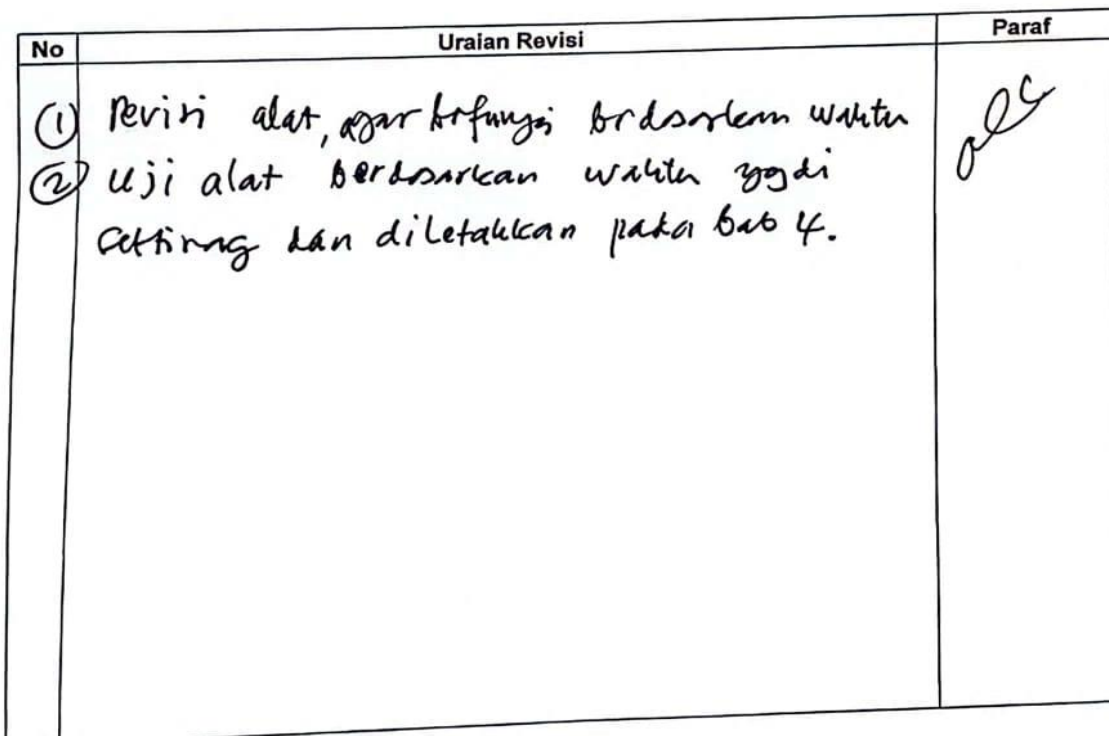 No Uraian Revisi Paraf
① Revisi alat, agar berfungsi berdasarkan waktu
② Uji alat berdasarkan waktu yg di
setting dan diletakkan pada bab 4.